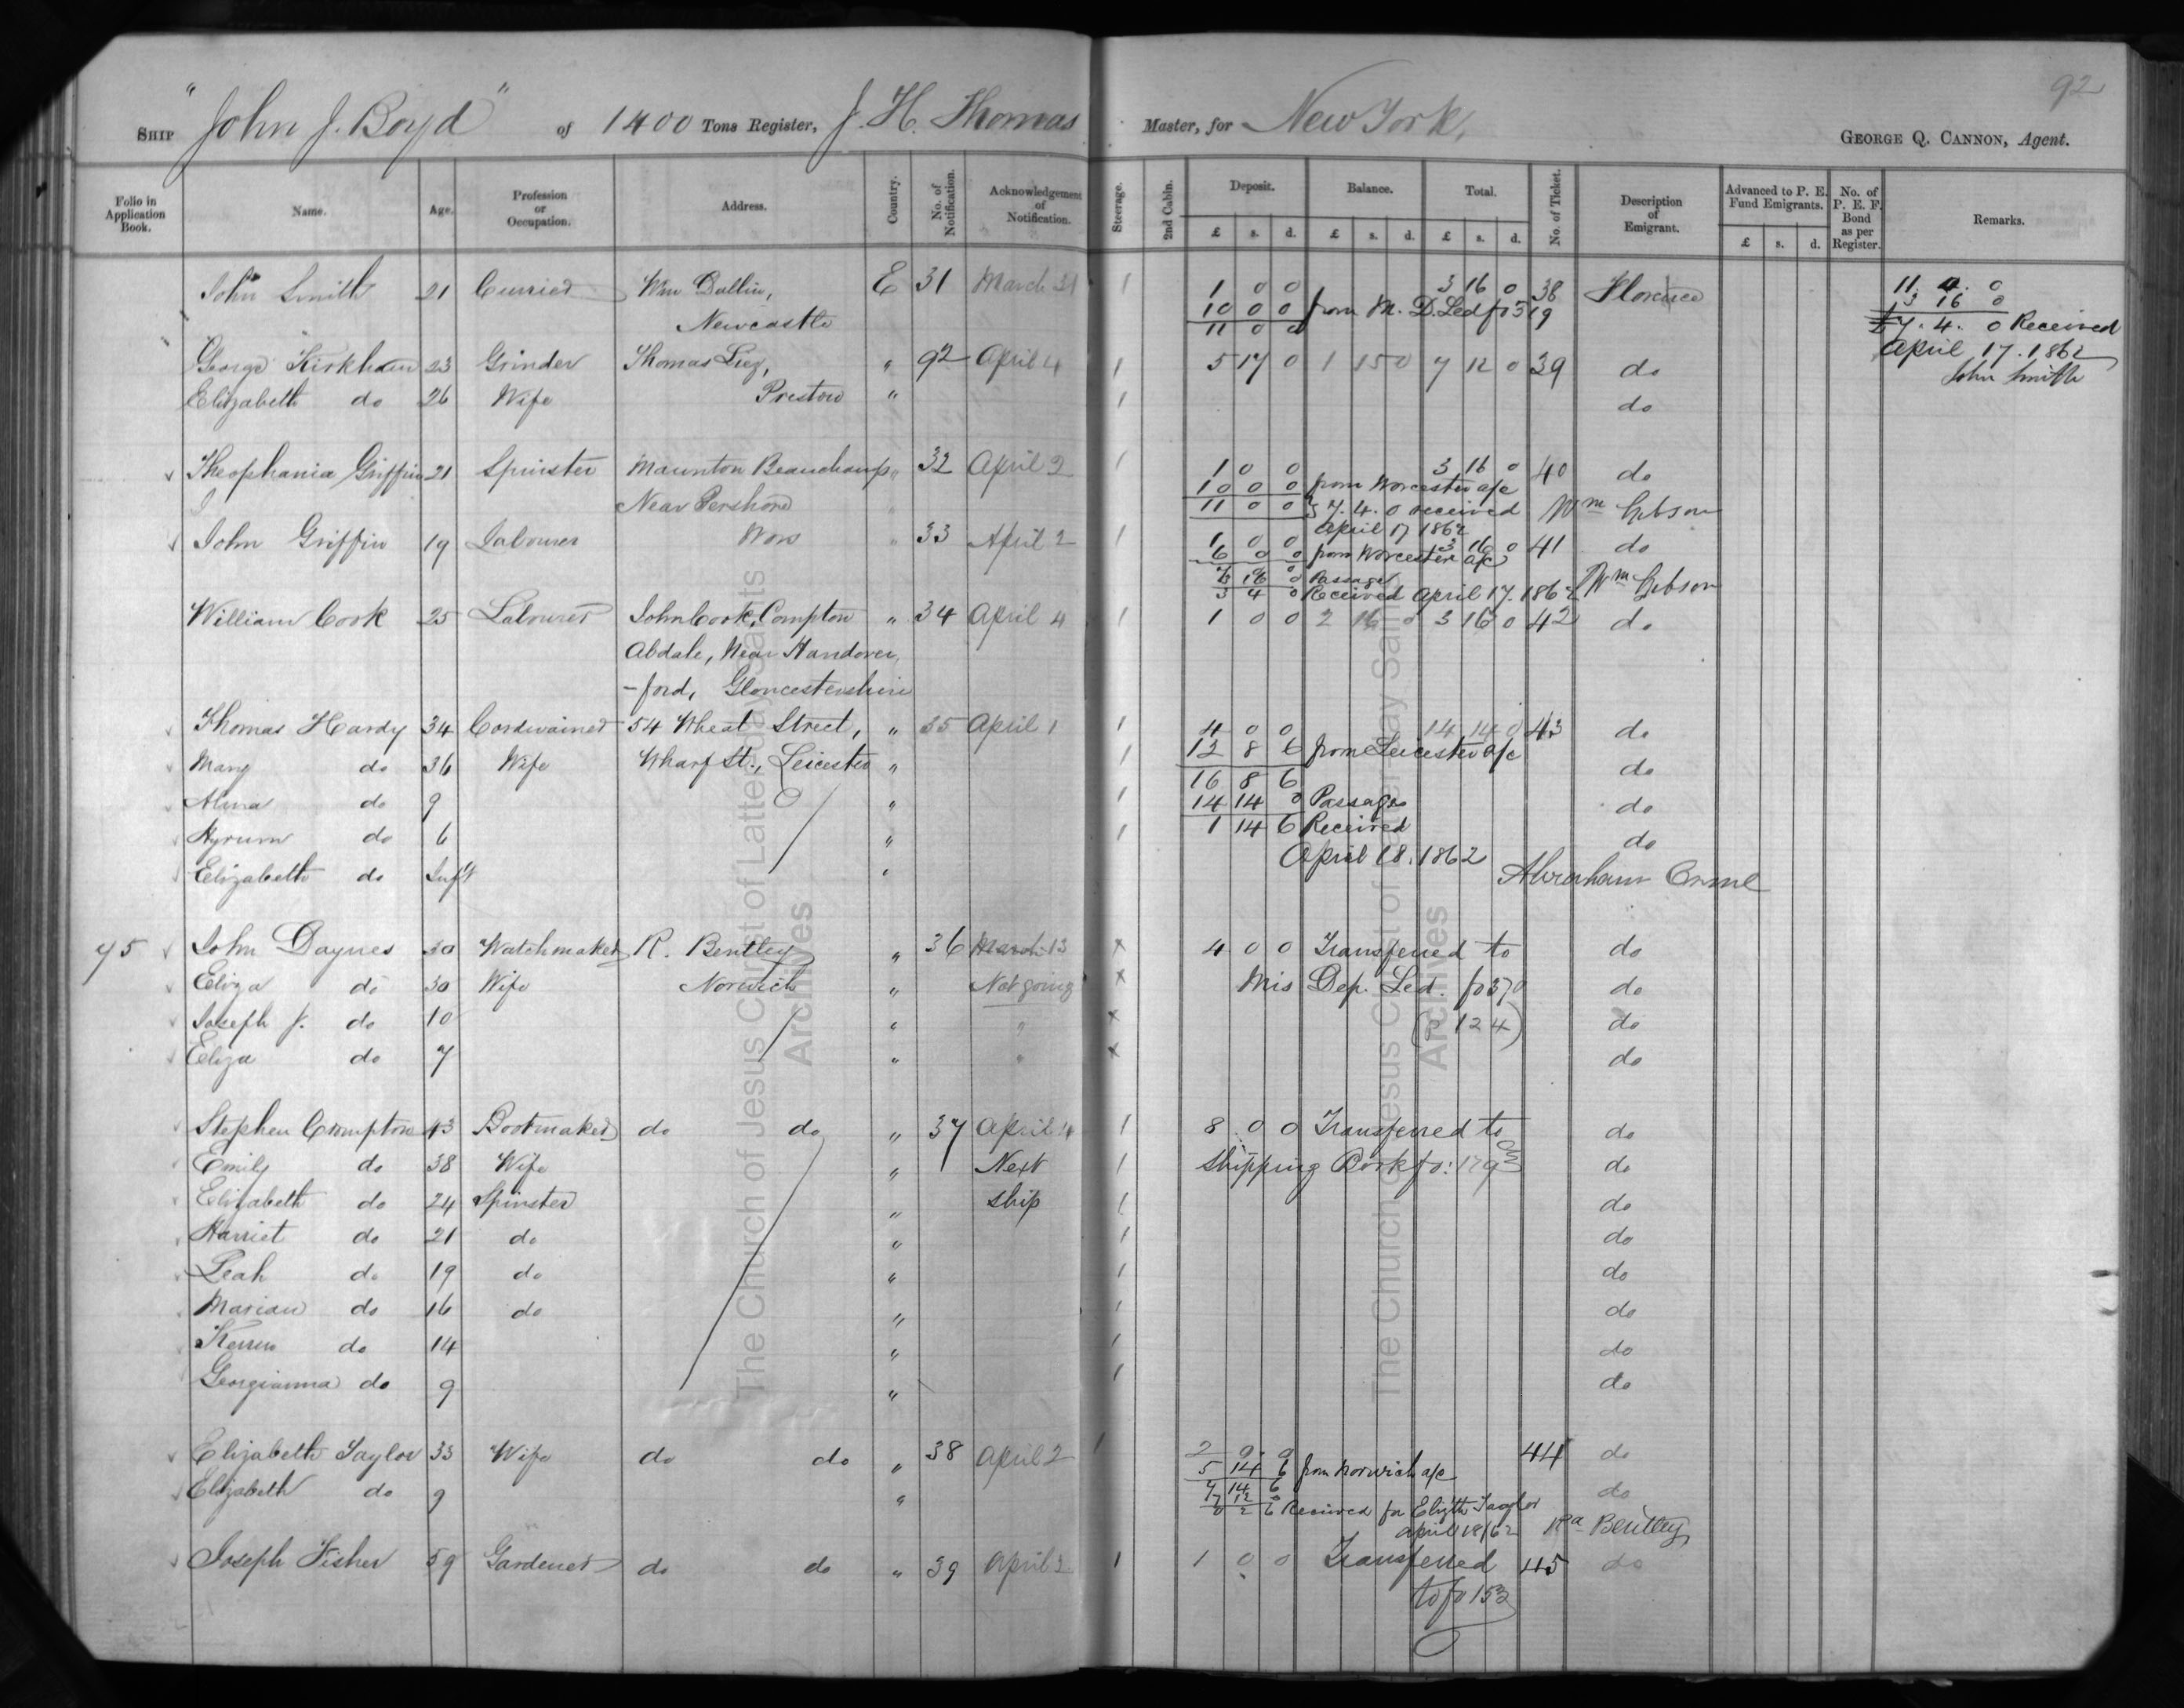 92
Ship "John J. Boyd" of 1400 Tons Register, J. H. Thomas Master, for New York, George Q. Cannon, Agent.
Folio in Application Book. Name. Age. Profession or Occupation. Address. Country. No. of Notification. Acknowledgement of Notification. Steerage. 2nd Cabin. Deposit. Balance. Total. No. of Ticket. Description of Emigrant. Advanced to P. E. Fund Emigrants. No. of P. E. F. Bond as per Register. Remarks.
£ s. d. £ s. d. £ s. d. £ s. d.
John Smith 21 Currier Wm Dallin, E 31 March 31 1 1 0 0 3 16 0 38 Florence 11. 4. 0
Newcastle 10 0 0 from M. D. Led fo 319 3 16 0
11 0 0 £7. 4. 0 Received
April 17. 1862
John Smith
George Kirkham 23 Grinder Thomas " 92 April 4 1 5 17 0 1 15 0 7 12 0 39 do
Elizabeth do 26 Wife Preston " 1 do
Theophania Griffin 21 Spinster Maunton Beauchamp " 32 April 2 1 1 0 0 3 16 0 40 do
Near Pershore 10 0 0 from Worcester a/c
11 0 0 £7. 4. 0 received Wm Gibson
April 17 1862
John Griffin 19 Labourer Wors " 33 April 2 1 1 0 0 3 16 0 41 do
6 0 0 from Worcester a/c
Passage
3 4 0 Received April 17. 1862 Wm Gibson
William Cook 25 Labourer John Cook, Compton " 34 April 4 1 1 0 0 2 16 0 3 16 0 42 do
Abdale, Near Handover
-ford, Gloucestershire
Thomas Hardy 34 Cordwainer 54 Wheat Street, " 35 April 1 1 4 0 0 14 14 0 43 do
Mary do 36 Wife Wharf St., Leicester " 1 12 8 6 from Leicester a/c do
16 8 6
Alma do 9 " 1 14 14 0 Passage do
Hyrum do 6 " 1 1 14 6 Received do
April 18. 1862
Elizabeth do Inft " Abraham Orme
75 John Daynes 30 Watchmaker R. Bentley " 36 March 13 x 4 0 0 Transferred to do
Eliza do 30 Wife Norwich " Not going x Mis Dep. Led. fo 370 do
Joseph J. do 10 " " x do
Eliza do 7 " " x do
Stephen Crompton 43 Bootmaker do do " 37 April 4 1 8 0 0 Transferred to do
Emily do 38 Wife " Next 1 Shipping Book fo: 179 do
Elizabeth do 24 Spinster " ship 1 do
Harriet do 21 do " 1 do
Leah do 19 do " 1 do
Marian do 16 do " 1 do
do 14 " 1 do
Georgianna do 9 " 1 do
Elizabeth Taylor 33 Wife do do " 38 April 2 1 2 0 0 44 do
5 14 6 from Norwich a/c
Elizabeth do 9 " 7 14 6 do
7 12 0
0 2 6 Received for Elizth Taylor
April 18/62 Rd Bentley
Joseph Fisher 59 Gardener do do " 39 April 2 1 1 0 0 Transferred 45 do
to fo 153
The Church of Jesus Christ of Latter-day Saints
Archives
The Church of Jesus Christ of Latter-day Saints
Archives